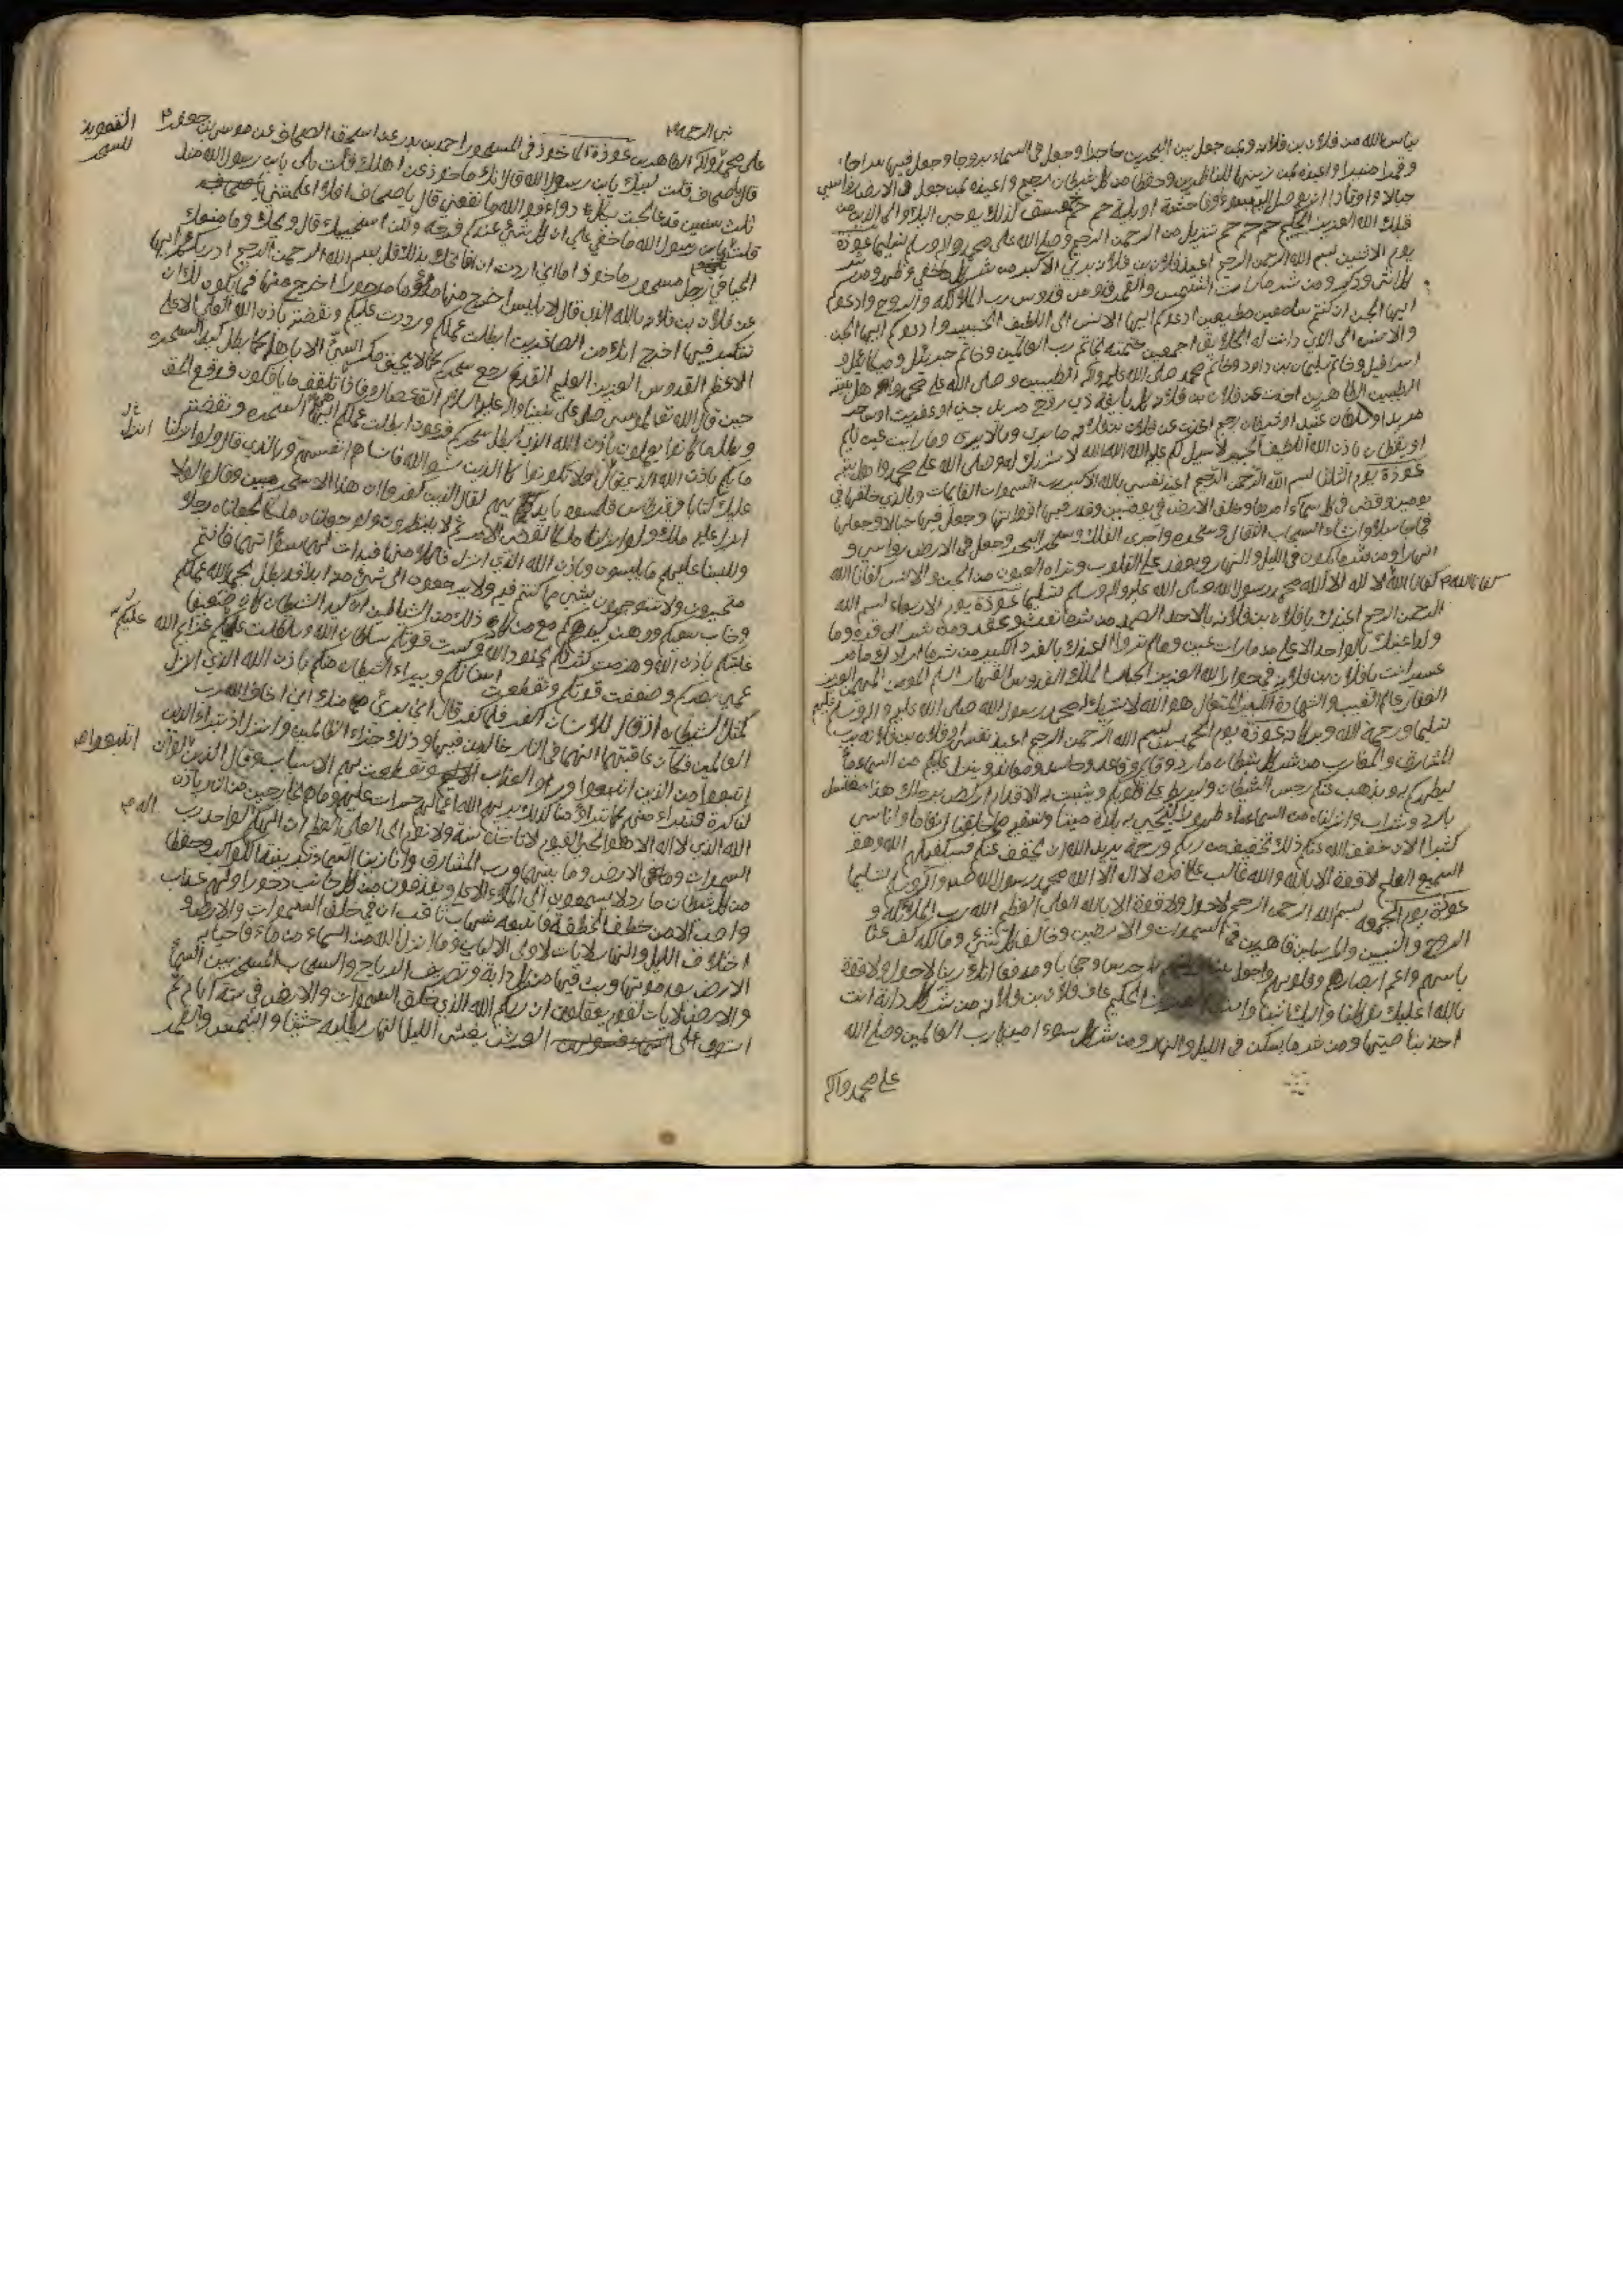 بأس الله من فلان بن فلانه وبمن جعل بين البحرين حاجزا وجعل في السماء بروجا وجعل فيها سراجا
وقمرا منيرا واعيذه بمن زينها للناظرين وحفظا من كل شيطان رجيم واعيذه بمن جعل في الارض رواسي
جبالا واوتادا ان يوصل اليه سوء او فاحشة او بلية حم حم عسق كذلك يوحى اليك والى الذين من
قبلك الله العزيز الحكيم حم حم حم تنزيل من الرحمن الرحيم وصلى الله على محمد واله وسلم تسليما عوذة
يوم الاثنين بسم الله الرحمن الرحيم اعيذ فلان بن فلان بربي الاكبر من شر ما خفي وظهر ومن شر
كل انثى وذكر ومن شر ما رات الشمس والقمر قدوس قدوس رب الملائكة والروح وادعوكم
ايها الجن ان كنتم سامعين مطيعين ادعوكم ايها الانس الى اللطيف الخبير وادعوكم ايها الجن
والانس الى الذي دانت له الخلائق اجمعين ختمته بخاتم رب العالمين وخاتم جبرئيل وميكائيل و
اسرافيل وخاتم سليمان بن داود وخاتم محمد صلى الله عليه واله الطيبين وصلى الله على محمد واله اهل بيته
الطيبين الطاهرين اخذت عن فلان بن فلان كل تابعة ذي روح مريد جني او عفريت او ساحر
مريد او سلطان عنيد او شيطان رجيم اخذت عن فلان بن فلان ما يرى وما لا يرى وما رات عين نائم
او يقظان باذن الله اللطيف الخبير لا سبيل لكم عليه الله الله الله لا شريك له وصلى الله على محمد واهل بيته
عوذة يوم الثلثا بسم الله الرحمن الرحيم اعيذ نفسي بالله الاكبر رب السموات القائمات وبالذي خلقها في
يومين وقضى في كل سماء امرها وخلق الارض في يومين وقدر فيها اقواتها وجعل فيها جبالا وجعلها
فجاجا سبلا وانشاء السحاب الثقال وسخره واجرى الفلك وسخر البحر وجعل في الارض رواسي و
انهارا ومن شر ما يكون في الليل والنهار ويعقد عليه القلوب وتراه العيون من الجن والانس كفانا الله
كفانا الله كفانا الله لا اله الا الله محمد رسول الله صلى الله عليه واله وسلم تسليما عوذة يوم الاربعاء بسم الله
الرحمن الرحيم اعيذك يا فلان بن فلان بالاحد الصمد من شر ما نفث وعقد ومن شر ابي قترة وما
ولد اعيذك بالواحد الاعلى مما رات عين وما لم تر واعيذك بالفرد الكبير من شر ما ارادك بامر
عسير انت يا فلان بن فلان في جوار الله العزيز الجبار الملك القدوس القهار السلام المومن المهيمن العزيز
الغفار عالم الغيب والشهادة الكبير المتعال هو الله لا شريك له محمد رسول الله صلى الله عليه واله وسلم عليهم
تسليما ورحمة الله وبركاته عوذة يوم الخميس بسم الله الرحمن الرحيم اعيذ نفسي او فلان بن فلانه برب
المشارق والمغارب من شر كل شيطان مارد وقائم وقاعد وحاسد ومعاند وينزل عليكم من السماء ماء
ليطهركم به ويذهب عنكم رجس الشيطان وليربط على قلوبكم ويثبت به الاقدام اركض برجلك هذا مغتسل
بارد وشراب وانزلنا من السماء ماء طهورا لنحيي به بلدة ميتا ونسقيه مما خلقنا انعاما واناسي
كثيرا الان خفف الله عنكم ذلك تخفيف من ربكم ورحمة يريد الله ان يخفف عنكم فسيكفيكهم الله وهو
السميع العليم لا قوة الا بالله والله غالب على امره لا اله الا الله محمد رسول الله صلى الله عليه واله وسلم تسليما
عوذة يوم الجمعه بسم الله الرحمن الرحيم لا حول ولا قوة الا بالله العلي العظيم الله رب الملائكة و
الروح والنبيين والمرسلين قاهر من في السموات والارضين وخالق كل شيء ومالكه كف عنا
باسهم واعم ابصارهم وقلوبهم واجعل بيننا حرسا وحجابا ومدفعا انك ربنا لا حول ولا قوة
بالله عليك توكلنا واليك انبنا وانت الحكيم عاف فلان بن فلان من شر كل دابة انت
اخذ بناصيتها ومن شر ما يسكن في الليل والنهار ومن شر كل سوء امين يا رب العالمين وصلى الله
على محمد واله
التعويذ
للسحر
على محمد واله الطاهرين عوذة الماخوذ في المسحور احمد بن بدر عن اسحق الصحاف عن موسى بن جعفر
قال يا صحاف قلت لبيك يابن رسول الله قال انك ماخوذ عن اهلك قلت بلى يابن رسول الله منذ
ثلث سنين قد عالجت بكل دواء فوالله ما نفعني قال يا صحاف افلا اعلمتني
قلت يابن رسول الله ما خفي علي ان كل شيء عندكم فرجه ولكن استحييك قال ويحك وما منعك
الحيا في رجل مسحور ماخوذ اما اني اردت ان افاتحك بذلك قل بسم الله الرحمن الرحيم ادراتكم ايها السحرة
عن فلان بن فلان بالله الذي قال لابليس اخرج منها مذؤما مدحورا اخرج منها فما يكون لك ان
تتكبر فيها اخرج انك من الصاغرين ابطلت عملكم ورددت عليكم ونقضته باذن الله العلي الاعلى
الاعظم القدوس العزيز العليم القديم رجع سحركم كما لا يحيق مكر السيء الا باهله كما بطل كيد السحرة
حين قال الله تعالى لموسى صلى على نبينا واله عليه السلام الق عصاك فاذا تلقف ما يافكون فوقع الحق
وبطل ما كانوا يعملون باذن الله الذي ابطل سحرة فرعون ابطلت عملكم ايها السحرة ونقضته
عليك كتابا في قرطاس فلمسوه بايديهم لقال الذين كفروا ان هذا الا سحر مبين وقالوا لولا
انزل عليه ملك ولو انزلنا ملكا لقضي الامر ثم لا ينظرون ولو جعلناه ملكا لجعلناه رجلا
وللبسنا عليهم ما يلبسون وباذن الله الذي انزل فاكلا منها فبدت لهما سوآتهما فانتم
متحيرون ولا تتوجهون بشيء مما كنتم فيه ولا يرجعون الى شيء منه ابدا قد بطل بحمد الله عملكم
وخاب سعيكم ووهن كيدكم مع من كان ذلك من الشياطين ان كيد الشيطان كان ضعيفا
غلبتكم باذن الله وهزمت كثرتكم بجنود الله وكسرت قوتكم بسلطان الله وسلطت عليكم عزائم الله
عمي بصركم وضعفت قوتكم وتقطعت اسبابكم وتبراء الشيطان منكم باذن الله الذي انزل
كمثل الشيطان اذ قال للانسان اكفر فلما كفر قال اني بريء منك اني اخاف الله رب
العالمين فكان عاقبتهما انهما في النار خالدين فيها وذلك جزاء الظالمين وانزل اذ تبراء الذين
اتبعوا من الذين اتبعوا وراوا العذاب وتقطعت بهم الاسباب وقال الذين اتبعوا لو ان
لنا كرة فنتبراء منهم كما تبراؤا منا كذلك يريهم الله اعمالهم حسرات عليهم وما هم بخارجين من النار باذن
الله الذي لا اله الا هو الحي القيوم لا تاخذه سنة ولا نوم الى العلي العظيم ان الهكم لواحد رب
السموات والارض وما بينهما ورب المشارق وانا زينا السماء الدنيا بزينة الكواكب وحفظا
من كل شيطان مارد لا يسمعون الى الملاء الاعلى ويقذفون من كل جانب دحورا ولهم عذاب
واصب الا من خطف الخطفة فاتبعه شهاب ثاقب ان في خلق السموات والارض و
اختلاف الليل والنهار لايات لاولي الالباب وما انزل الله من السماء من ماء فاحيا به
الارض بعد موتها وبث فيها من كل دابة وتصريف الرياح والسحاب المسخر بين السماء
والارض لايات لقوم يعقلون ان ربكم الله الذي خلق السموات والارض في ستة ايام ثم
استوى على العرش يغشي الليل النهار يطلبه حثيثا والشمس والقمر